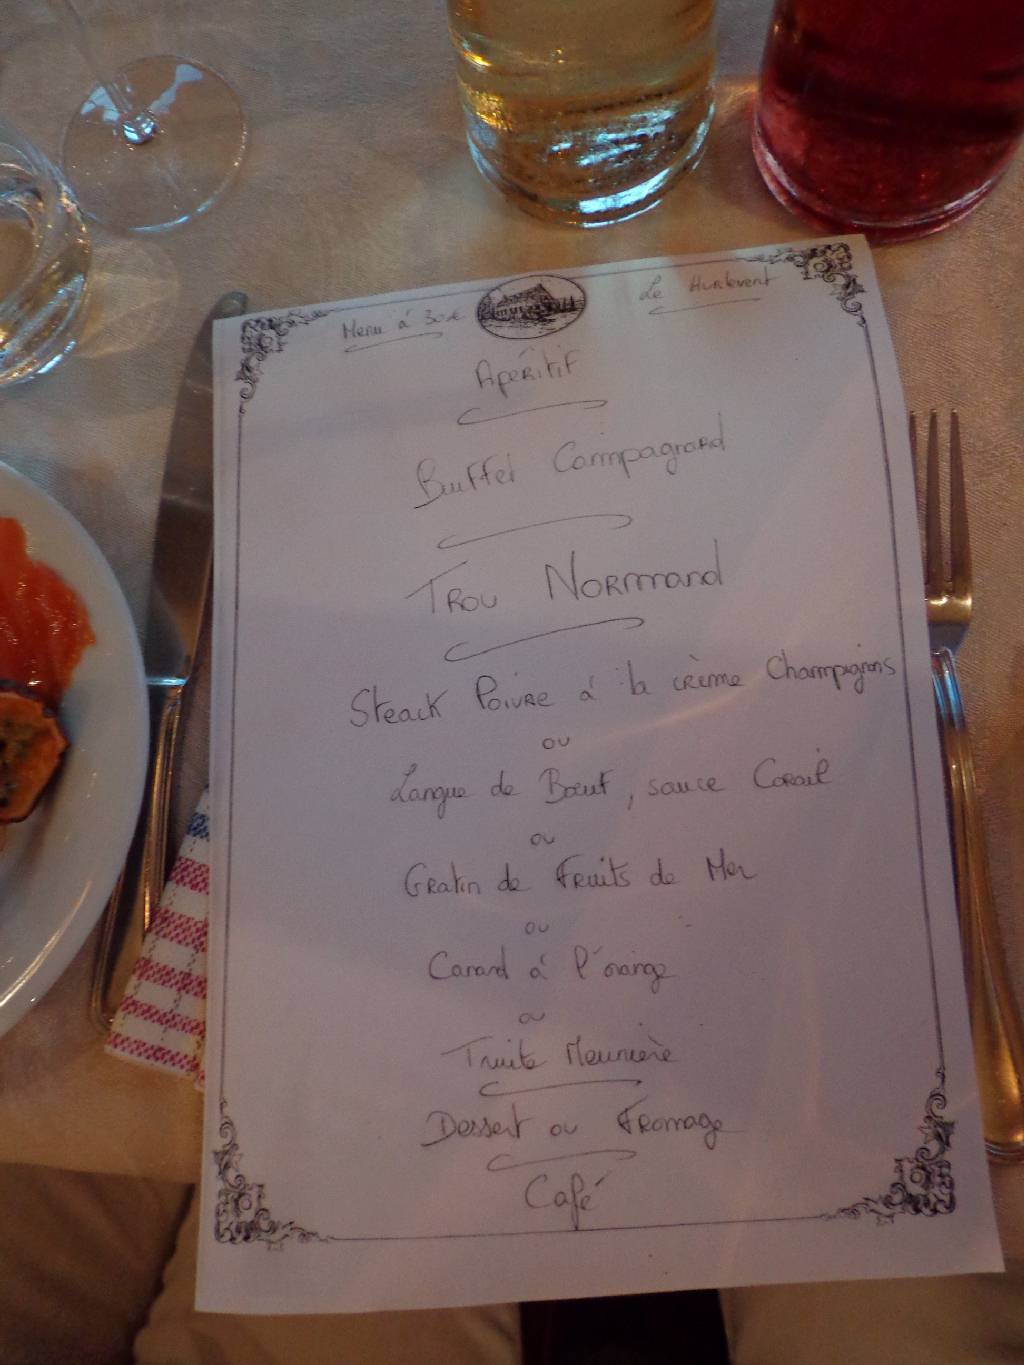 Menu à 30€
Le Hurlevent
Apéritif
Buffet Campagnard
Trou Normand
Steack Poivre à la crème Champignons
ou
Langue de Bœuf, sauce Corail
ou
Gratin de Fruits de Mer
ou
Canard à l'orange
ou
Truite Meunière
Dessert ou Fromage
Café